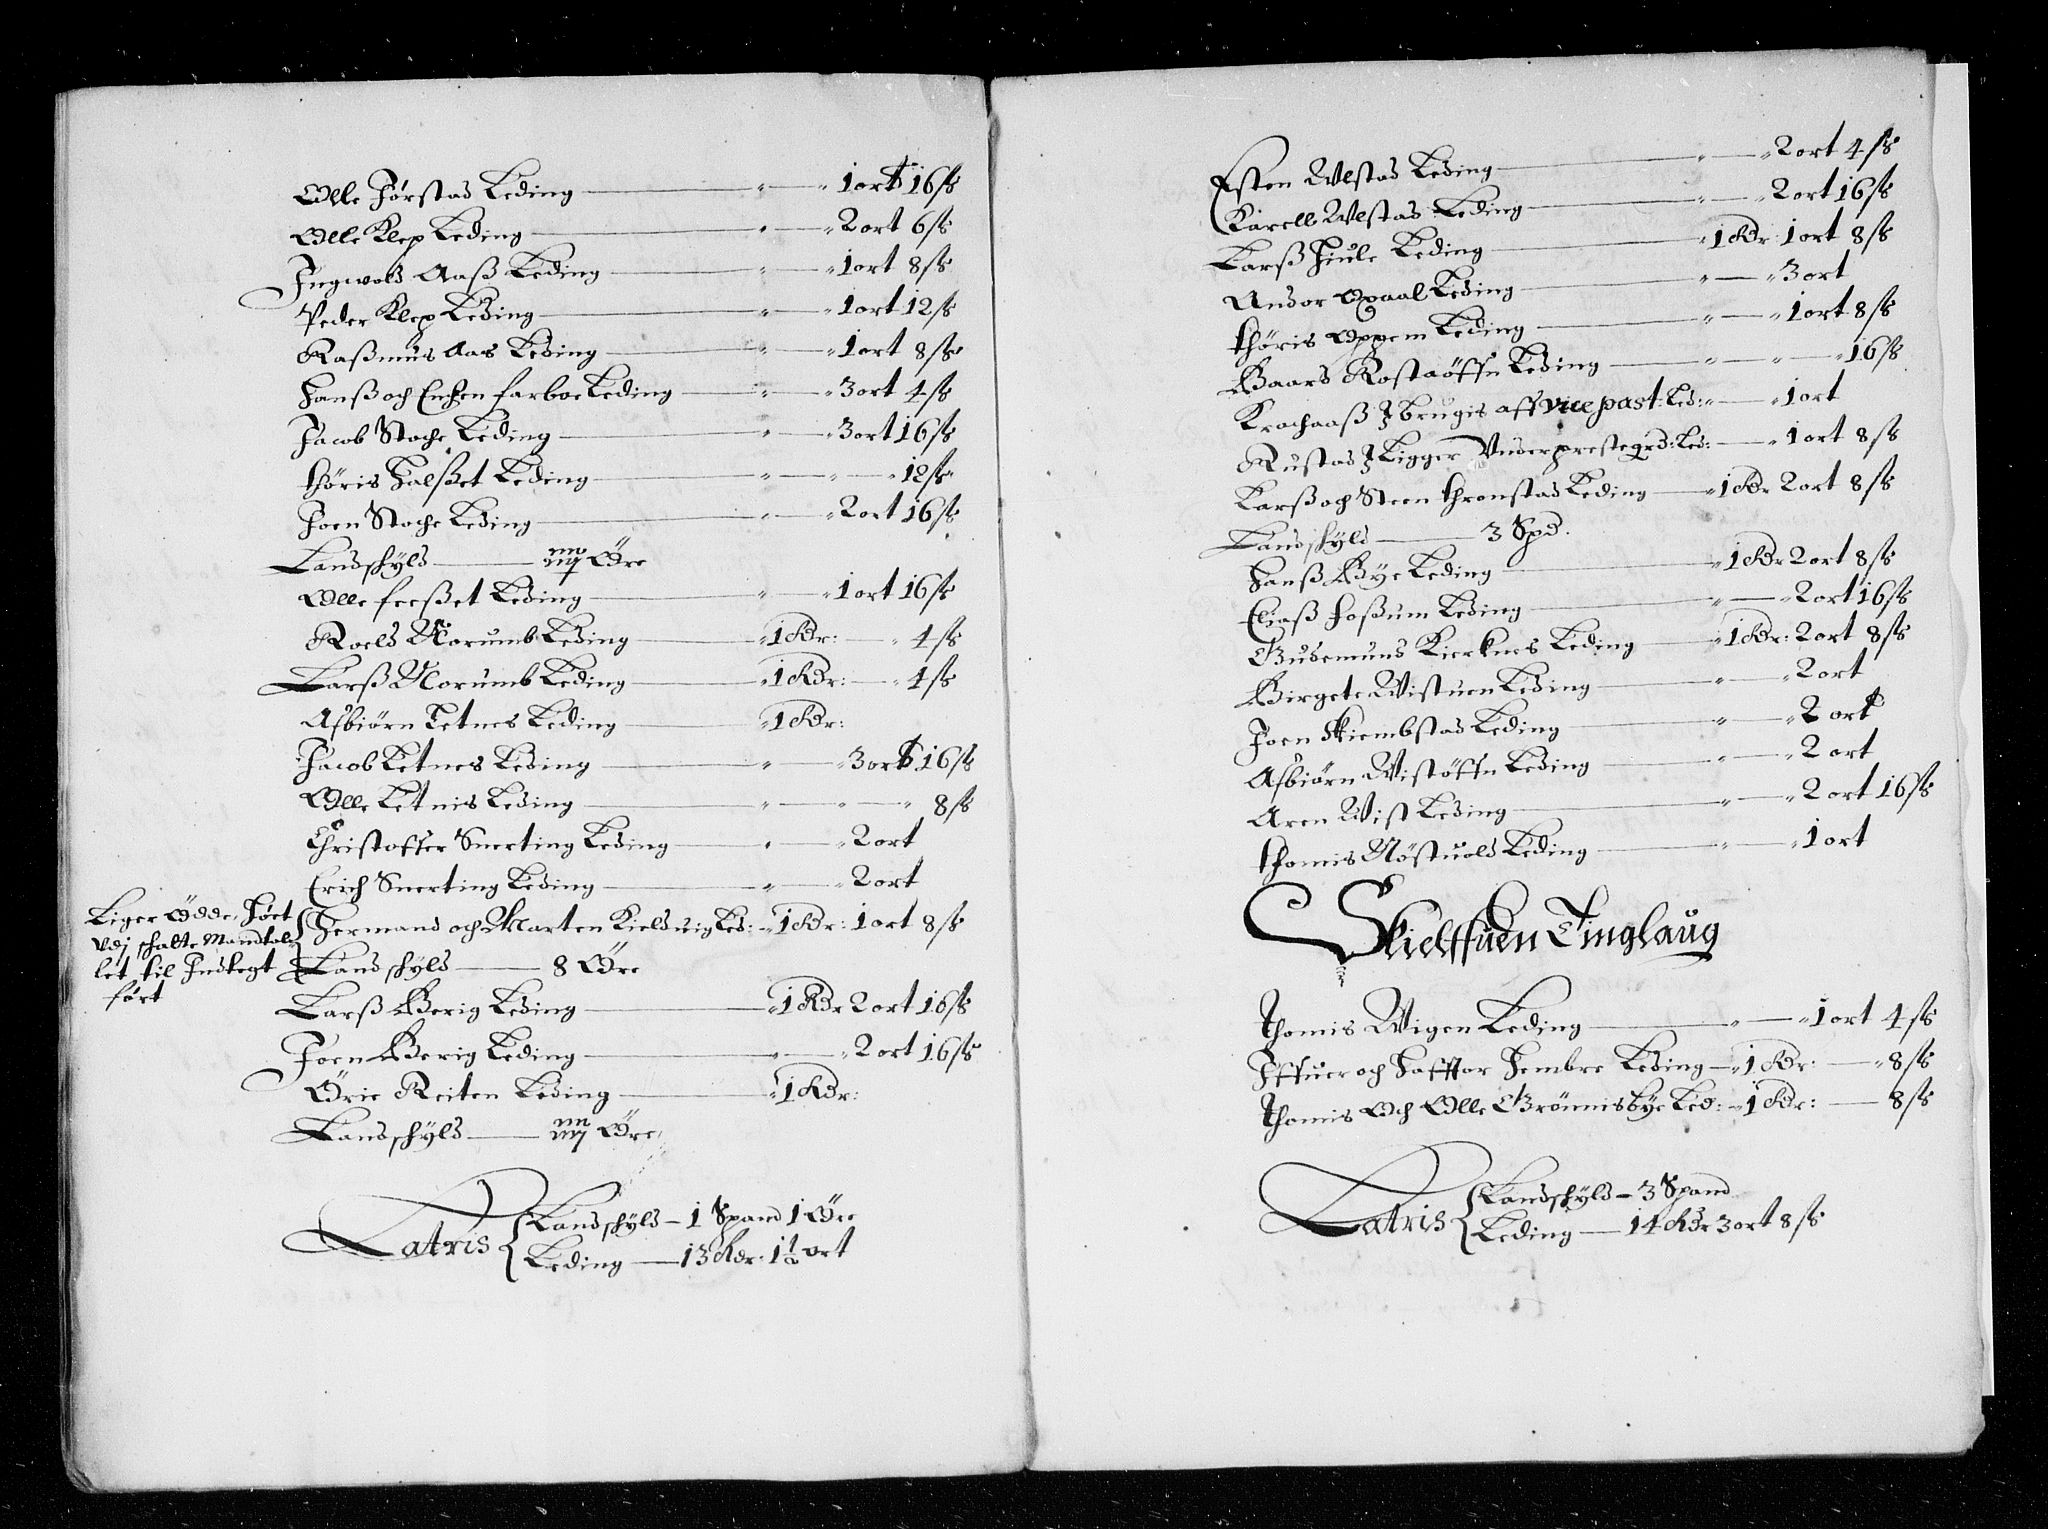 Olle Førstad Leding — " — " 1 ort 16 ß
Olle Klep Leding — " — " 2 ort 6 ß
Ingwold Aaß Leding — " — " 1 ort 8 ß
Peder Klep Leding — " — " 1 ort 12 ß
Raßmus Aas Leding — " — " 1 ort 8 ß
Hanß och Enchen farboe Leding — " — " 3 ort 4 ß
Jacob Stoche Leding — " — " 3 ort 16 ß
Thöris Halset Leding — " — " — " 12 ß
Joen Stoche Leding — " — " 2 ort 16 ß
Landschyld — Öre
Olle feeßet Leding — " — " 1 ort 16 ß
Roeld Norumb Leding — " 1 Rdr: — " 4 ß
Larß Norumb Leding — " 1 Rdr: — " 4 ß
Asbiörn Letnes Leding — " 1 Rdr:
Jacob Letnes Leding — " — " 3 ort 16 ß
Olle Letnis Leding — " — " — " 8 ß
Christoffer Snerting Leding — " — " 2 ort
Erich Snerting Leding — " — " 2 ort
Liger Ödde, Höet
Vdj schatte Mandtal
let til Indtegt
ført
Jermand och Marten Kieldvig Led: — " 1 Rdr: 1 ort 8 ß
Landschyld — 8 Öre
Larß Berig Leding — " 1 Rdr 2 ort 16 ß
Joen Berig Leding — " — " 2 ort 16 ß
Örie Reiten Leding — " 1 Rdr:
Landschyld — Öre
Latris { Landschyld — 1 Spand 1 Öre
Leding — 13 Rdr: 1½ ort
Esten Wlstad Leding — " — " 2 ort 4 ß
Karell Wlstad Leding — " — " 2 ort 16 ß
Larß Hiule Leding — " 1 Rdr 1 ort 8 ß
Andor Opaal Leding — " — " 3 ort
Thöris Oppem Leding — " — " 1 ort 8 ß
Baard Rostaöffn Leding — " — " — " 16 ß
Krachaaß J brugis aff vice past: Led: " — " 1 ort
Rustad J Ligger Vnder prestegrd: Led: — " 1 ort 8 ß
Larß och Steen Thronstad Leding — " 1 Rdr 2 ort 8 ß
Landschyld — 3 Spd.
Hanß Bye Leding — " 1 Rdr 2 ort 8 ß
Eliaß Foßum Leding — " — " 2 ort 16 ß
Gudemund Kierknes Leding — " 1 Rdr: 2 ort 8 ß
Birgete Wistuen Leding — " — " 2 ort
Joen Skiembstad Leding — " — " 2 ort
Asbiörn Wistöffn Leding — " — " 2 ort
Aren Wist Leding — " — " 2 ort 16 ß
Thomis Nöstuold Leding — " — " 1 ort
Skielffuen Tinglaug
Thomis Wigen Leding — " — " 1 ort 4 ß
Iffuer och Hafftor Jembre Leding — " 1 Rdr: — " 8 ß
Thomis Och Olle Grönnisbye Led: — " 1 Rdr: — 8 ß
Latris { Landschyld — 3 Spand
Leding — 14 Rdr 3 ort 8 ß